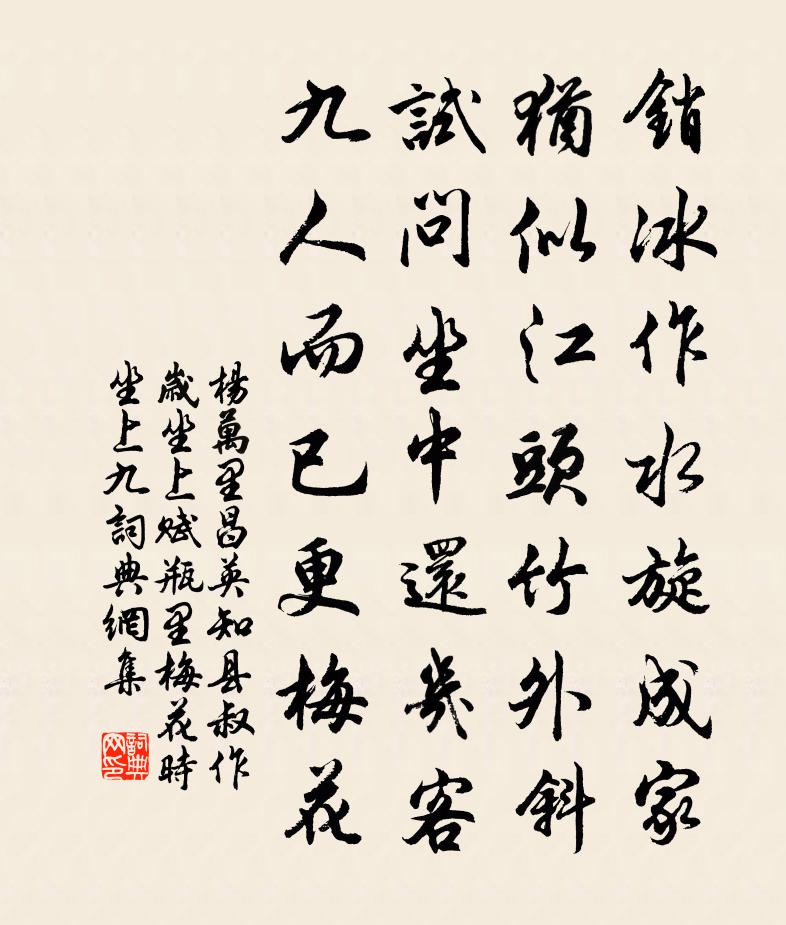 銷冰作水旋成家
猶似江頭竹外斜
試問坐中還幾客
九人而已更梅花
楊萬里昌英知县叔作
歲坐上賦瓶里梅花時
坐上九詞典網集
詞典网印